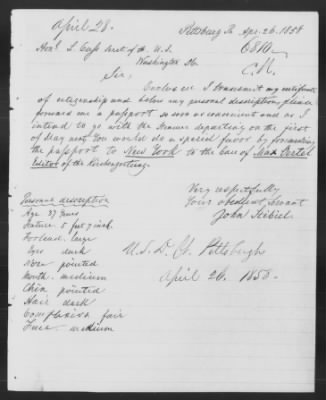 April 28.
Pittsburg Pa Apr. 26. 1858
Hon. L Cass Secr. of St. U.S.
Washington DC
Sir,
Enclosed I transmit my certificate
of citizenship and below my personal description, please
forward me a passport as soon as convenient and as I
intend to go with the Steamer departing on the first
of May next You would do a special favor by forwarding
the passport to New York to the Care of Max Oertel
Editor of the Kirchenzeitung.
Very respectfully
Your obedient Servant
John
Personal description
Age 37 Years
Stature 5 feet 7 inch.
Forehead large
Eyes dark
Nose pointed
Mouth medium
Chin pointed
Hair dark
Complexion fair
Face medium
U.S.D. Ct. Pittsburgh
April 26. 1858.